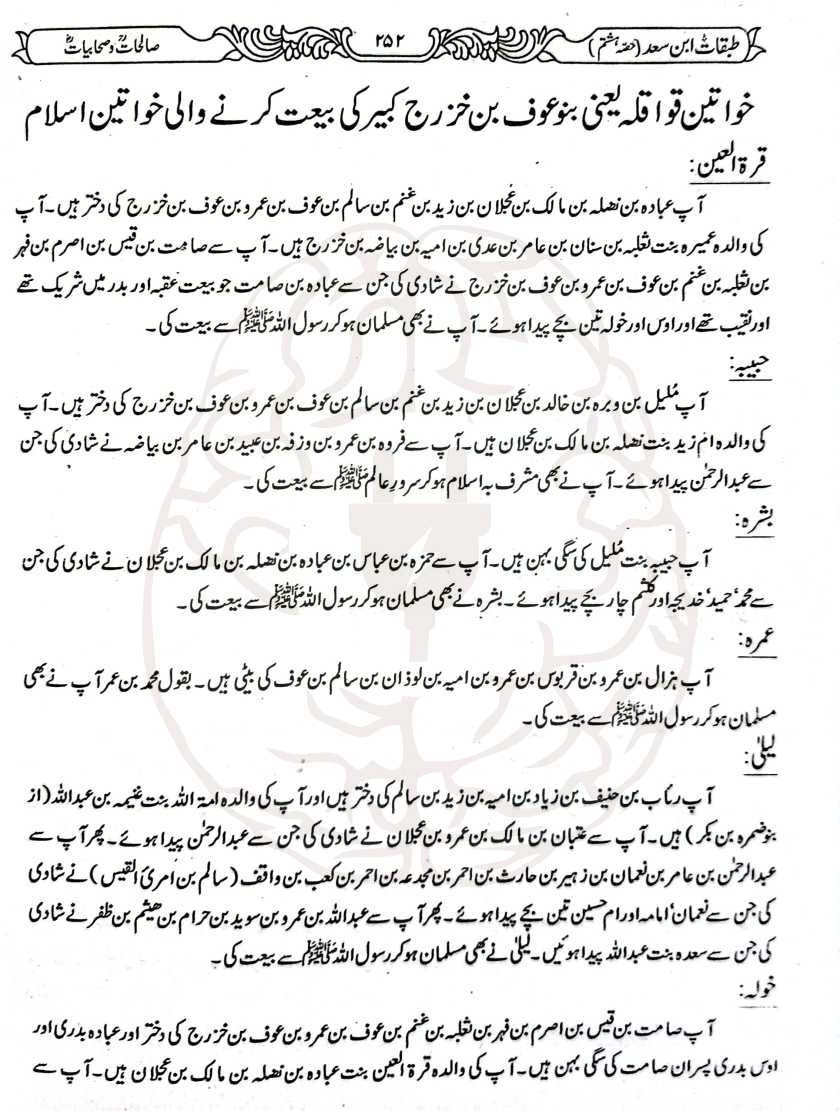 طبقات ابن سعد (حصّہ ہشتم)
۲۵۲
صالحات و صحابیات
خواتین قواقلہ یعنی بنو عوف بن خزرج کبیر کی بیعت کرنے والی خواتین اسلام
قرۃ العین:
آپ عبادہ بن نضلہ بن مالک بن عجلان بن زید بن غنم بن سالم بن عوف بن عمرو بن عوف بن خزرج کی دختر ہیں۔ آپ
کی والدہ عمیرہ بنت ثعلبہ بن سنان بن عامر بن عدی بن امیہ بن بیاضہ بن خزرج ہیں۔ آپ سے صامت بن قیس بن اصرم بن فہر
بن ثعلبہ بن غنم بن عوف بن عمرو بن عوف بن خزرج نے شادی کی جن سے عبادہ بن صامت جو بیعت عقبہ اور بدر میں شریک تھے
اور نقیب تھے اور اوس اور خولہ تین بچے پیدا ہوئے۔ آپ نے بھی مسلمان ہو کر رسول اللہ ﷺ سے بیعت کی۔
حبیبہ:
آپ مُلیل بن وبرہ بن خالد بن عجلان بن زید بن غنم بن سالم بن عوف بن عمرو بن عوف بن خزرج کی دختر ہیں۔ آپ
کی والدہ ام زید بنت نضلہ بن مالک بن عجلان ہیں۔ آپ سے فروہ بن عمرو بن وزفہ بن عبید بن عامر بن بیاضہ نے شادی کی جن
سے عبدالرحمٰن پیدا ہوئے۔ آپ نے بھی مشرف بہ اسلام ہو کر سرورِ عالم ﷺ سے بیعت کی۔
بشرہ:
آپ حبیبہ بنت مُلیل کی سگی بہن ہیں۔ آپ سے حمزہ بن عباس بن عبادہ بن نضلہ بن مالک بن عجلان نے شادی کی جن
سے محمد' حمید' خدیجہ اور کلثم چار بچے پیدا ہوئے۔ بشرہ نے بھی مسلمان ہو کر رسول اللہ ﷺ سے بیعت کی۔
عمرہ:
آپ ہزال بن عمرو بن قربوس بن عمرو بن امیہ بن لوذان بن سالم بن عوف کی بیٹی ہیں۔ بقول محمد بن عمر آپ نے بھی
مسلمان ہو کر رسول اللہ ﷺ سے بیعت کی۔
لیلیٰ:
آپ رئاب بن حنیف بن زیاد بن امیہ بن زید بن سالم کی دختر ہیں اور آپ کی والدہ امۃ اللہ بنت غنیمہ بن عبداللہ (از
بنو ضمرہ بن بکر) ہیں۔ آپ سے عتبان بن مالک بن عمرو بن عجلان نے شادی کی جن سے عبدالرحمٰن پیدا ہوئے۔ پھر آپ سے
عبدالرحمٰن بن عامر بن نعمان بن زہیر بن حارث بن احمر بن مجدعہ بن احمر بن کعب بن واقف (سالم بن امرئ القیس) نے شادی
کی جن سے نعمان' امامہ اور ام حسین تین بچے پیدا ہوئے۔ پھر آپ سے عبداللہ بن عمرو بن سوید بن حرام بن ھیثم بن ظفر نے شادی
کی جن سے سعدہ بنت عبداللہ پیدا ہوئیں۔ لیلیٰ نے بھی مسلمان ہو کر رسول اللہ ﷺ سے بیعت کی۔
خولہ:
آپ صامت بن قیس بن اصرم بن فہر بن ثعلبہ بن غنم بن عوف بن عمرو بن عوف بن خزرج کی دختر اور عبادہ بدری اور
اوس بدری پسران صامت کی سگی بہن ہیں۔ آپ کی والدہ قرۃ العین بنت عبادہ بن نضلہ بن مالک بن عجلان ہیں۔ آپ سے